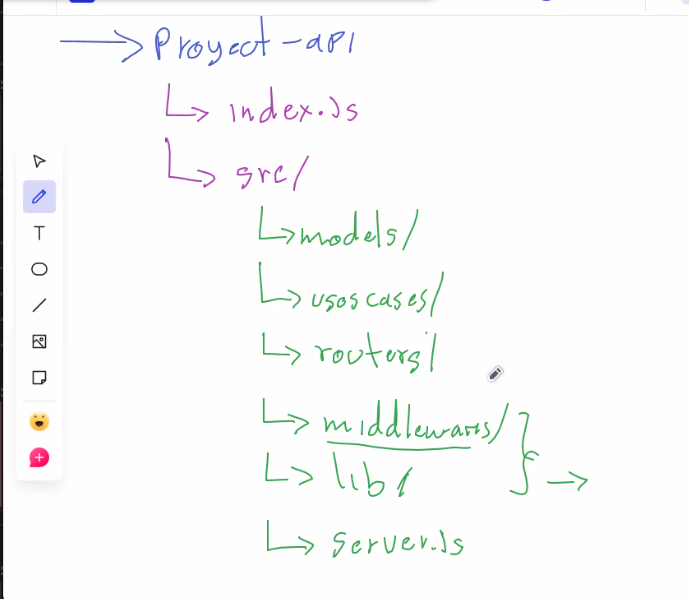 → Proyect-api
↳ index.js
↳ src/
↳ models/
↳ usoscases/
↳ routers/
↳ middlewares/ } →
↳ lib/
↳ server.js
T